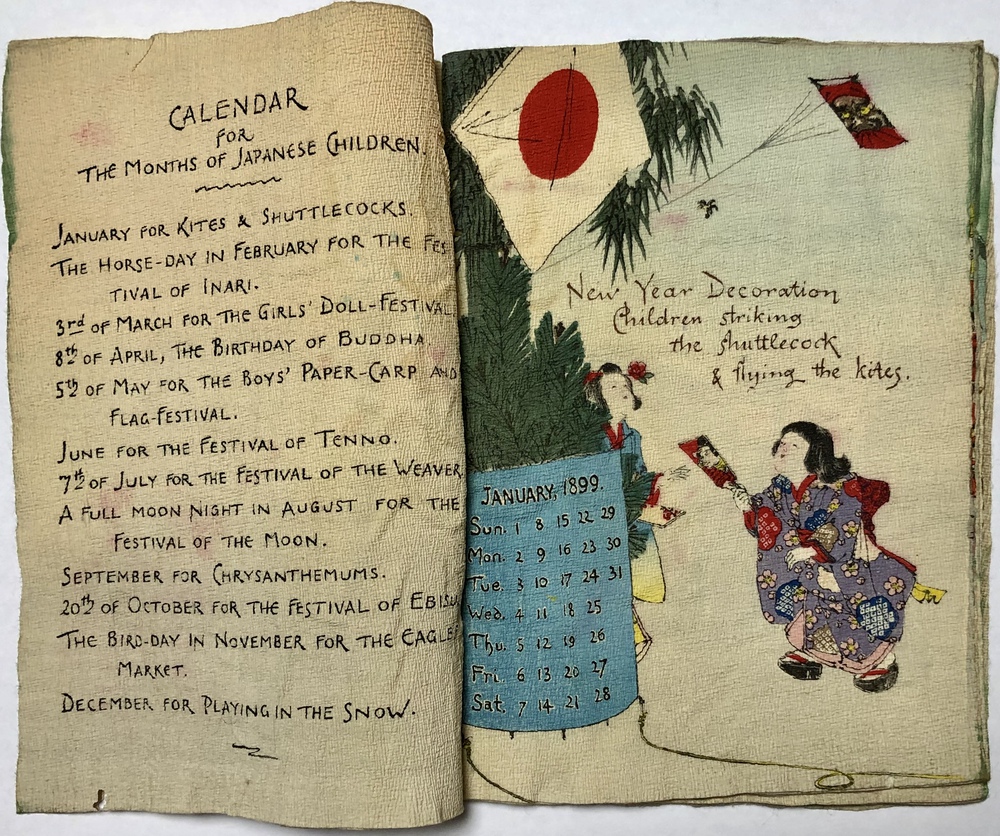 CALENDAR
FOR
THE MONTHS OF JAPANESE CHILDREN.
JANUARY FOR KITES & SHUTTLECOCKS.
THE HORSE-DAY IN FEBRUARY FOR THE FES
TIVAL OF INARI.
3rd OF MARCH FOR THE GIRLS' DOLL-FESTIVAL
8th OF APRIL, THE BIRTHDAY OF BUDDHA
5th OF MAY FOR THE BOYS' PAPER-CARP AND
FLAG-FESTIVAL.
JUNE FOR THE FESTIVAL OF TENNO.
7th OF JULY FOR THE FESTIVAL OF THE WEAVER
A FULL MOON NIGHT IN AUGUST FOR THE
FESTIVAL OF THE MOON.
SEPTEMBER FOR CHRYSANTHEMUMS.
20th OF OCTOBER FOR THE FESTIVAL OF EBISU
THE BIRD-DAY IN NOVEMBER FOR THE EAGLE
MARKET.
DECEMBER FOR PLAYING IN THE SNOW.
New Year Decoration
Children striking
the shuttlecock
& flying the kites.
JANUARY, 1899.
Sun. 1 8 15 22 29
Mon. 2 9 16 23 30
Tue. 3 10 17 24 31
Wed. 4 11 18 25
Thu. 5 12 19 26
Fri. 6 13 20 27
Sat. 7 14 21 28